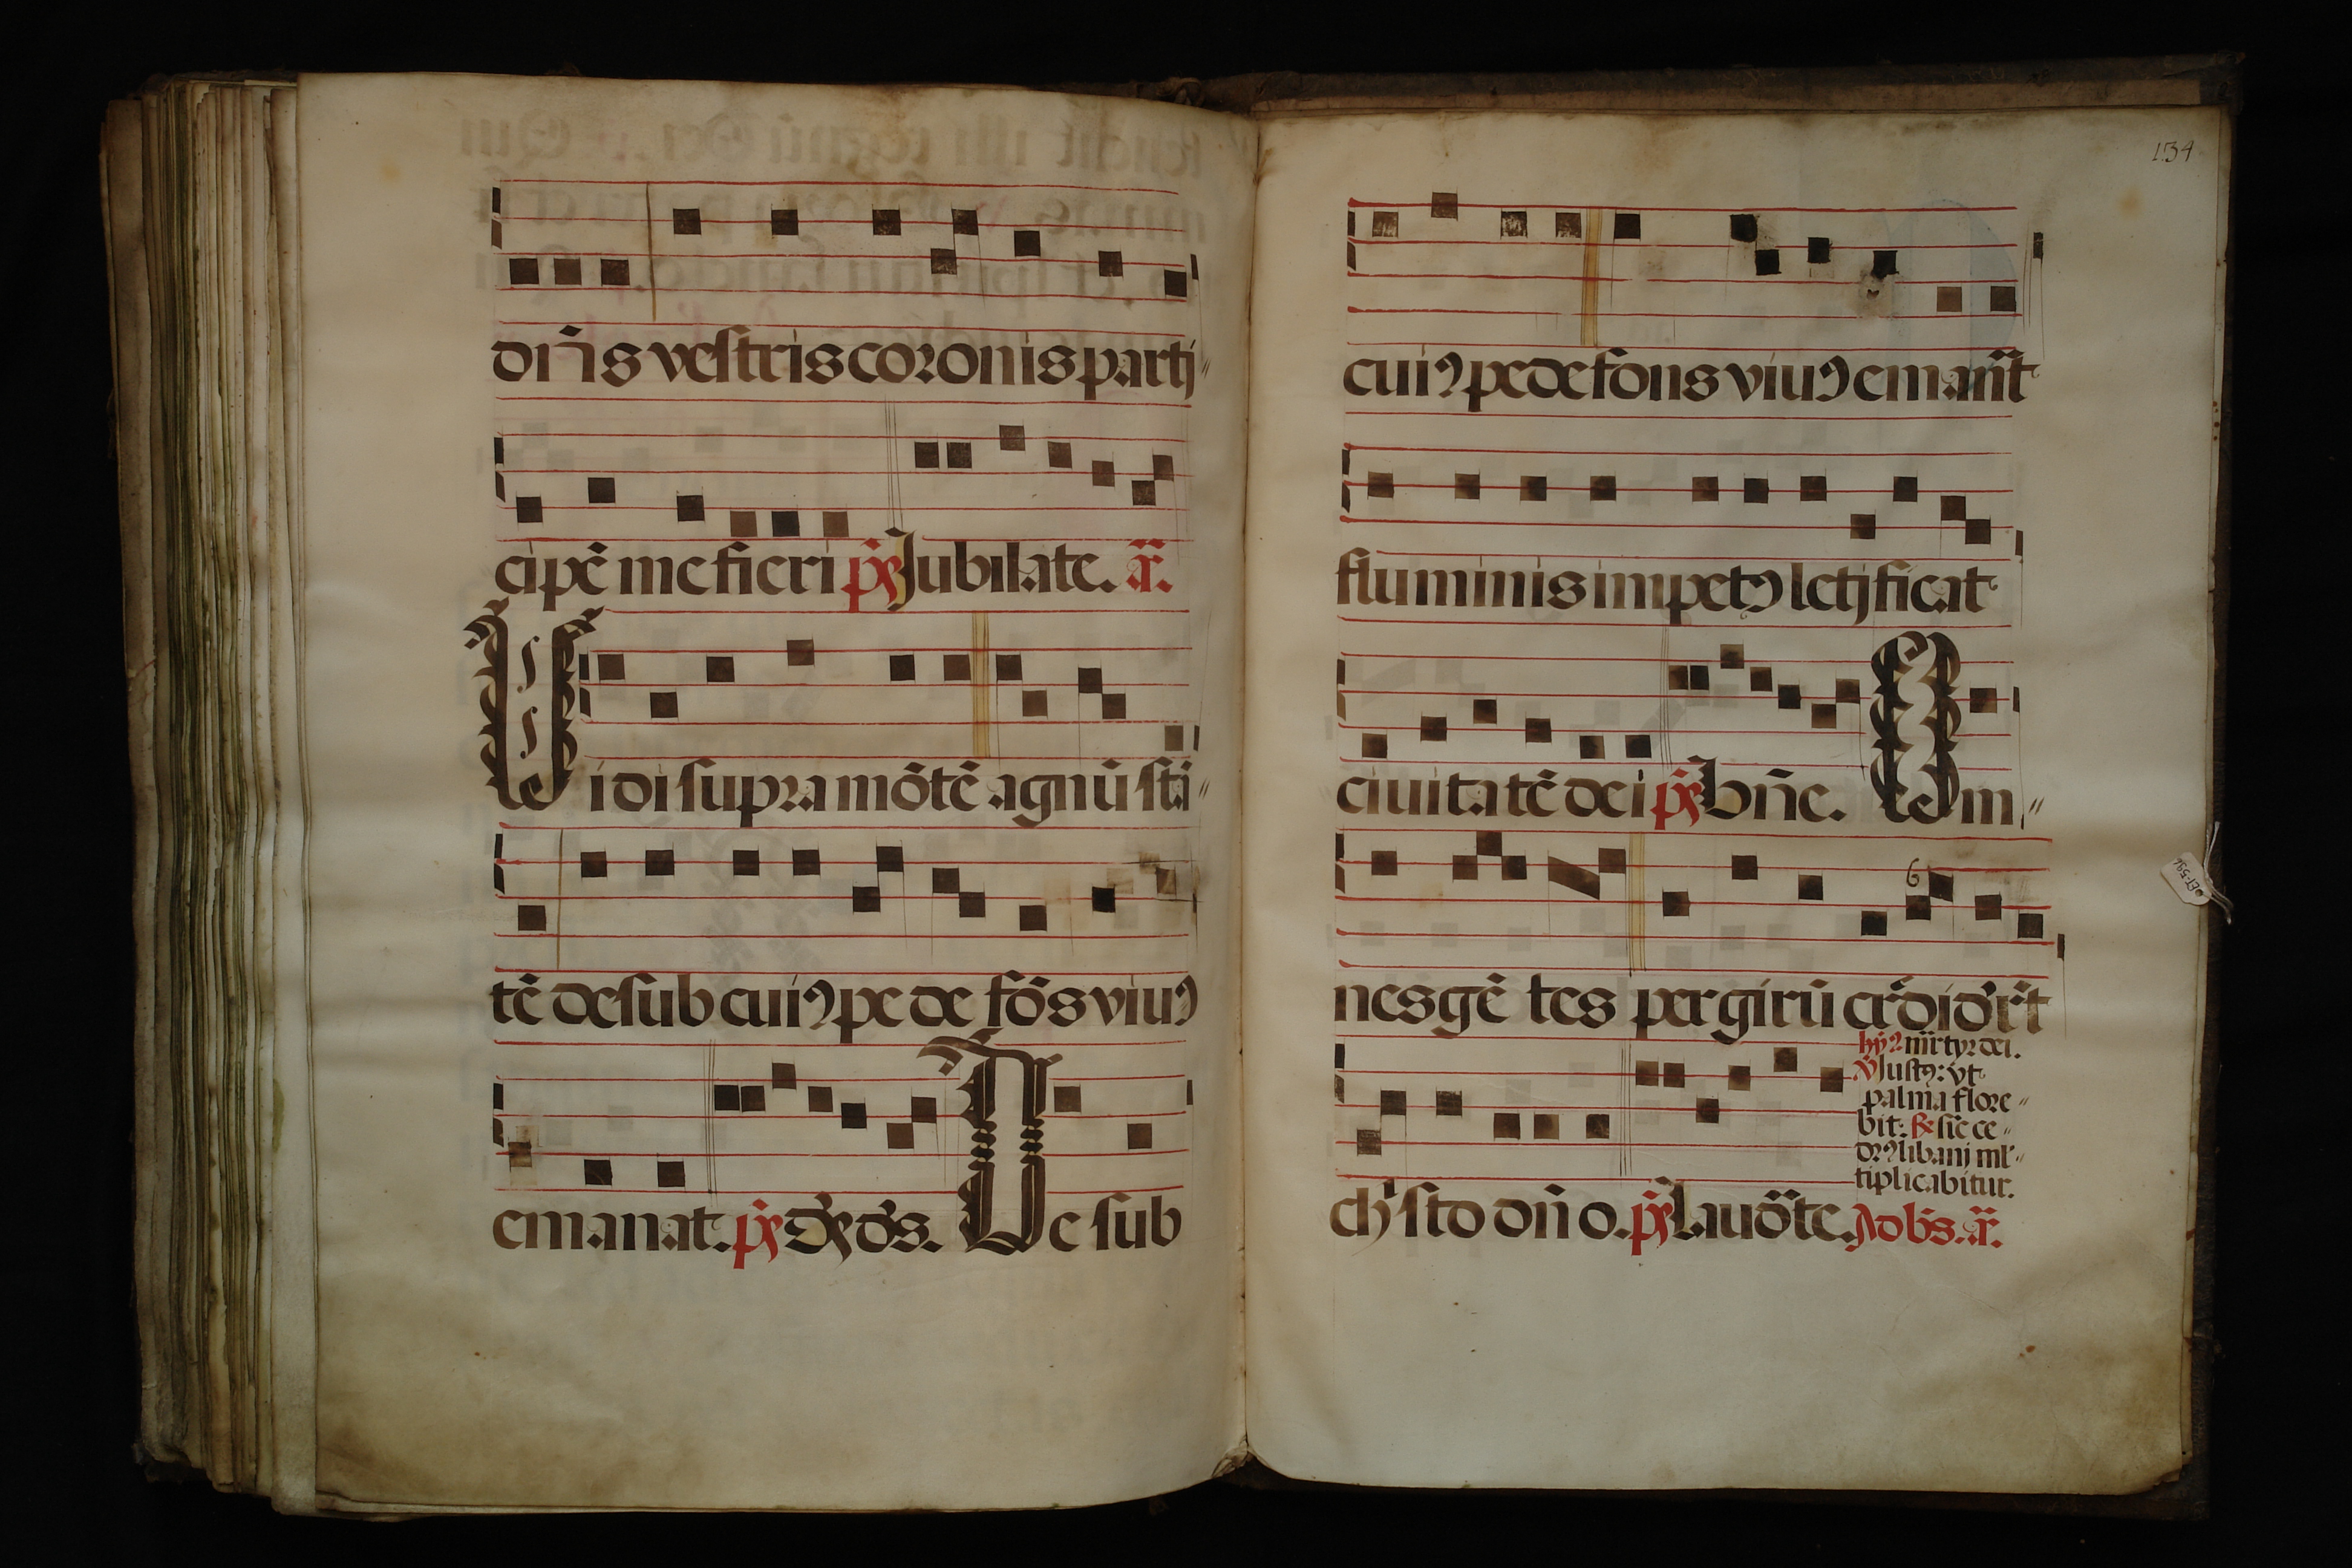 dn̄is vestris coronis parti"
cipē me fieri p̄s Jubilate. a͞.
Vidi supra mōtē agnū stā"
tē de sub cuiꝰ pe de fōs viuꝰ
emanat. p̄s Ds̄ ds̄. De sub
134
cuiꝰ pede fons viuꝰ emanāt
fluminis impetꝰ letificat
ciuitatē dei p̄s bn̄e. Om"
nes gē tes per girū cr̄didēr̄t
6
hȳꝰ mr̄tyr dei.
v̄ Justꝰ: vt
palma flore"
bit: R̄ sic ce"
drꝰ libani ml̄"
tiplicabitur.
ch̄isto dn̄o. p̄s Laudāte. Ad bs̄. a͞.